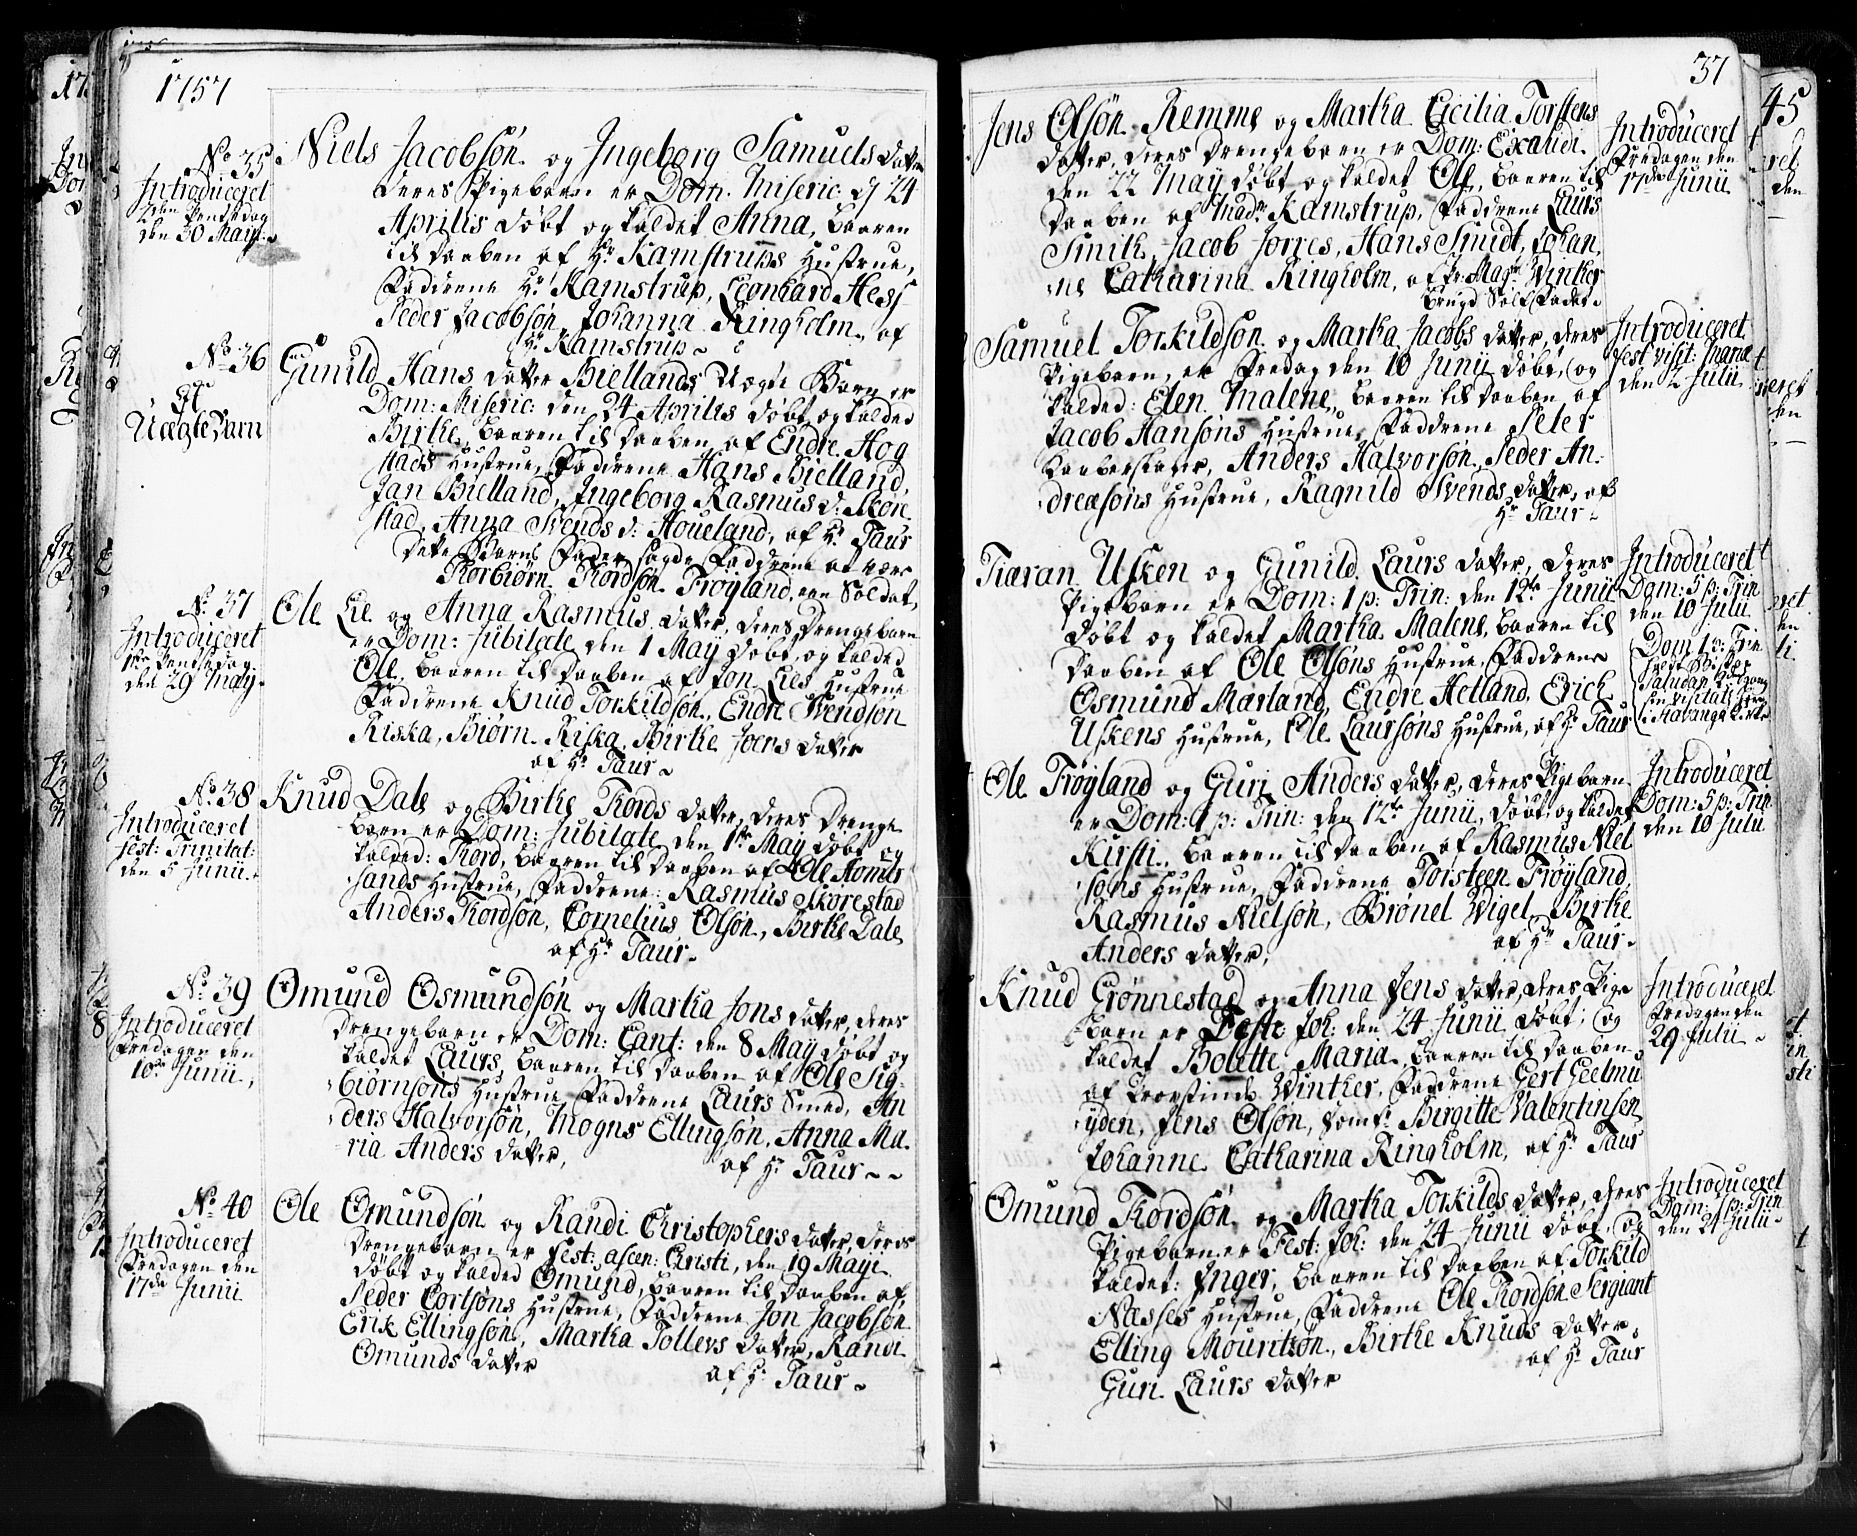 1757
No 35
Introduceret
2den Pentsedag
den 30 Maÿ
Niels Jacobsøn og Ingeborg Samuels datter
deres Pigebarn er Dom. Miseric. d 24
Aprilis døbt og kaldet Anna, baaren
til daaben af Hr Kamstrups Hustrue,
Fadderne Hr Kamstrup, Leonhard Hess
Peder Jacobsøn, Johanna Ringholm, af
Hr Kamstrup
No 36
Et
Uægte Barn
Gunild Hans datter Biellands Uægte Barn er
Dom: Miseric: den 24 Aprilis døbt og kalded
Birthe, baaren til daaben af Endre Hog
stads Hustrue, Fadderne Hans Bielland,
Jan Bielland, Ingeborg Rasmus d: Skøre
stad, Anna Svends d: Houeland, af Hr Taur
Dette Barns Fader sagde Fadderne at være
Torbiørn Tordsøn Frøyland, een Soldat,
No 37
Introduceret
1te Pentsedag
den 29 Maÿ
Ole Lie og Anna Rasmus datter, deres Drengebarn
er Dom: Jubilate den 1 Maÿ døbt, og kaldet
Ole, baaren til daaben af Jon Lies Hustrue
Fadderne Knud Torkildsøn, Endre Svendsøn
Riska, Biørn Riska, Birthe Joens datter
af Hr Taur
No 38
Introduceret
Fest: Trinitat:
den 5 Junii
Knud Dale og Birthe Tords datter, deres Drenge
barn er Dom: Jubilate den 1te Maÿ døbt og
kalded: Tord, baaren til daaben af Ole
sands Hustrue, Fadderne: Rasmus Skørestad
Anders Tordsøn, Cornelius Olsøn, Birthe Dale
af Hr Taur
No 39
Introduceret
Fredagen den
10de Junii,
Omund Osmundsøn og Martha Jons datter, deres
Drengebarn er Dom: Cant: den 8 Maÿ døbt og
kaldet Laurs, baaren til daaben af Ole Sig
biørnsøns Hustrue, Fadderne Laurs Smed, An
ders Halvorsøn, Mogns Ellingsøn, Anna Ma
ria Anders datter, af Hr Taur
No 40
Introduceret
Fredagen den
17de Junii
Ole Omundsøn og Randi Christophers datter, deres
Drengebarn er Fest: ascen: Christi, den 19 Mayi
døbt og kaldet Omund, baaren til daaben af
Peder Cortsøns Hustrue, Fadderne Jon Jacobsøn
Erik Ellingsøn, Martha Tollevs datter, Randi
Omunds datter af Hr Taur
37
Jens Olsøn Remme og Martha Cicilia Torstens
datter, deres Drengebarn er Dom: Exaudi
den 22 Maÿ døbt og kaldet Ole, baaren til
daaben af Madm Kamstrup, Fadderne Laurs
Smith, Jacob Jorres, Hans Smidt, Johan
ne Catharina Ringholm, af Hr Winther
Introduceret
Fredagen den
17de Junii
Samuel Torkildsøn og Martha Jacobs datter, deres
Pigebarn, er Fredag den 10 Junii døbt, og
kaldet: Elen Malene, baaren til daaben af
Jacob Hansøns Hustrue, Fadderne Peter
Anders Halvorsøn, Peder An
dreæsøns Hustrue, Ragnild Svends datter, af
Hr Taur
Introduceret
Fest visit: Mariæ
den 2 Julii
Tiæran Usken og Gunild Laurs datter, deres
Pigebarn er Dom: 1 p: Trin: den 12te Junii
døbt og kaldet Martha Malene, baaren til
daaben af Ole Olsøns Hustrue, Fadderne
Osmund Marland, Endre Hetland, Erich
Uskens Hustrue, Ole Laursøns Hustrue, af Hr Taur
Introduceret
Dom: 5 p: Trin
den 10 Julii
Dom 1 p: Trin
i Stavanger Kirke
Ole Frøyland og Guri Anders datter, deres Pigebarn
er Dom: 1 p: Trin: den 12te Junii, døbt, og kaldet
Kirsti, baaren til daaben af Rasmus Niel
søns Hustrue, Fadderne Torsteen Frøyland
Rasmus Nielsøn, Brønel Wigel, Birthe
Anders datter, af Hr Taur
Introduceret
Dom: 5 p: Trin
den 10 Julii
Knud Grønnestad og Anna Jens datter, deres Pige
barn er Festo Joh: den 24 Junii døbt, og
kaldet Bolette Maria, baaren til daaben
af Provstinde Winther, Fadderne Gert Geelmu
yden, Jens Olsøn, Jomfr Birgitte Valentinsen
Johanne Catharina Ringholm, af Hr Taur
Introduceret
Fredagen den
29 Julii
Omund Tordsøn og Martha Torkilds datter, deres
Pigebarn er Fest: Joh: den 24 Junii døbt, og
kaldet: Inger, baaren til daaben af Torkild
Næsses Hustrue, Fadderne Ole Tordsøn Sergiant
Elling Mouritsøn, Birthe Knuds datter
Guri Laurs datter af Hr Taur
Introduceret
Dom: 7 p: Trin
den 24 Julii
45